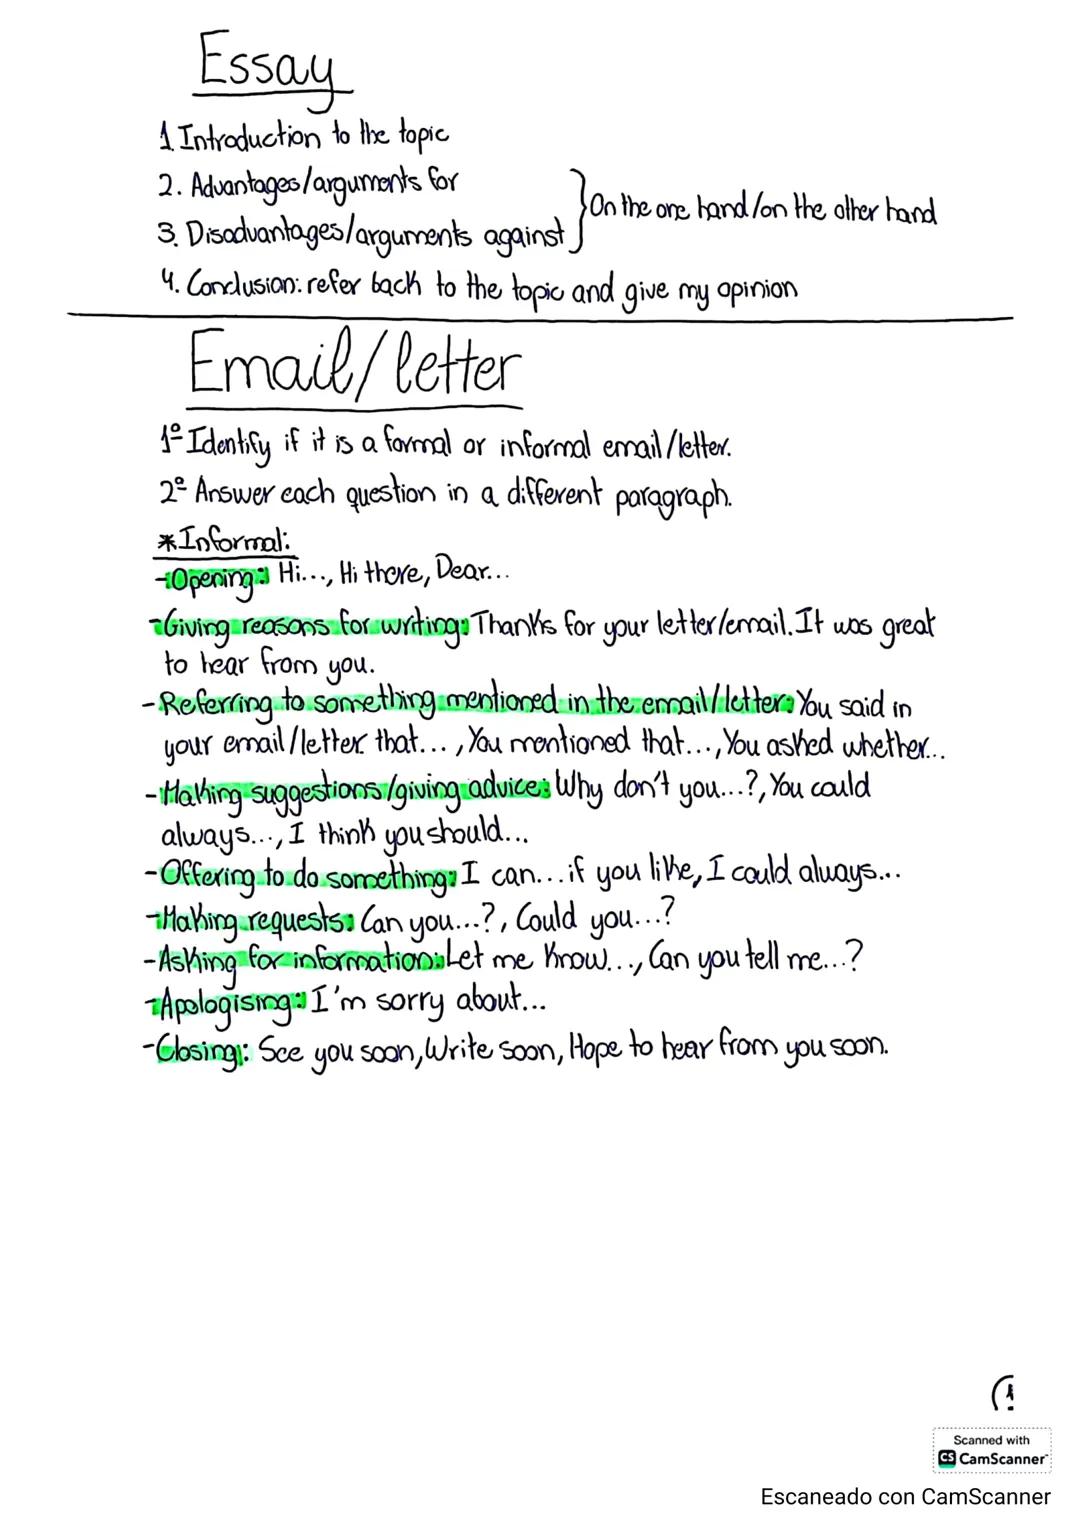 Essay
1. Introduction to the topic
2. Advantages/arguments for
3. Disadvantages/arguments against
On the one hand/on the other hand
4. Conclusion: refer back to the topic and give my opinion
Email/letter
1º Identify if it is a formal or informal email/letter.
2º Answer each question in a different paragraph.
*Informal:
-Opening: Hi..., Hi there, Dear...
-Giving reasons for writing: Thanks for your letter/email. It was great
to hear from you.
-Referring to something mentioned in the email/letter: You said in
your email/letter that..., You mentioned that..., You asked whether...
-Making suggestions/giving advice: Why don't you...?, You could
always..., I think you should...
-Offering to do something: I can...if you like, I could always...
-Making requests: Can you...?, Could you...?
-Asking for information: Let me know..., Can you tell me...?
-Apologising: I'm sorry about...
-Closing: See you soon, Write soon, Hope to hear from you soon.
Scanned with
CS CamScanner
Escaneado con CamScanner